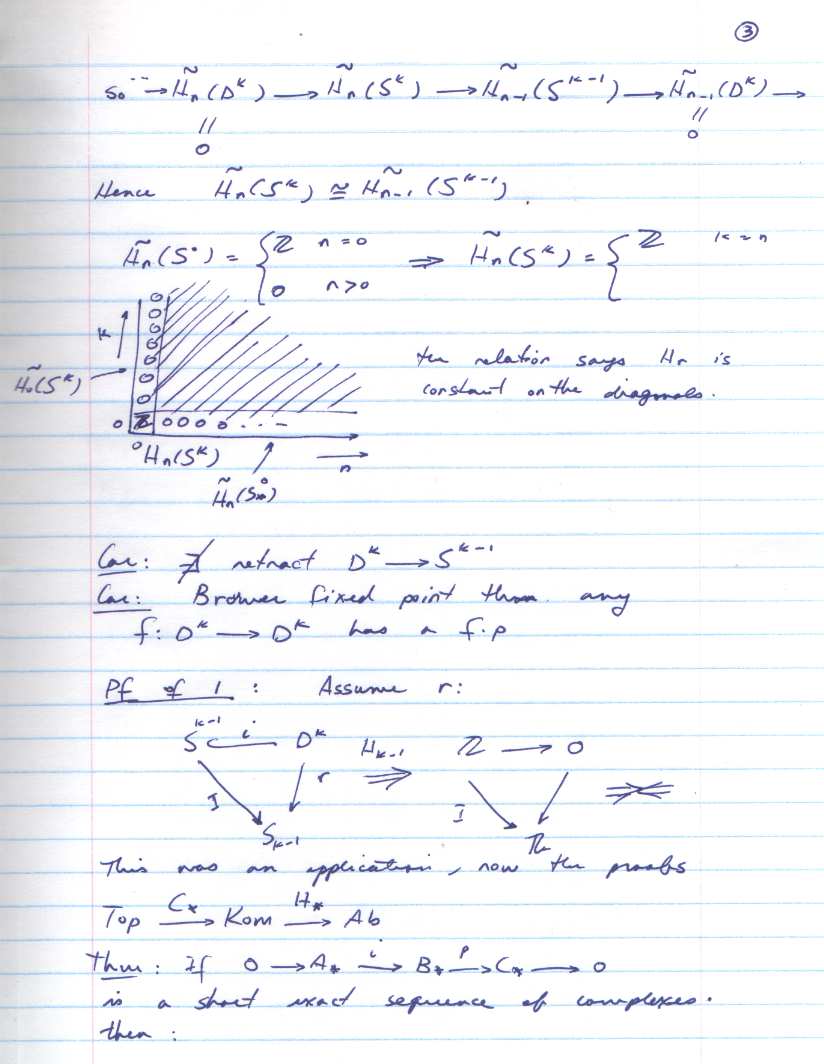 ③
So ··· → H̃ₙ(Dᵏ) → H̃ₙ(Sᵏ) → H̃ₙ₋₁(Sᵏ⁻¹) → H̃ₙ₋₁(Dᵏ) →
|| ||
0 0
Hence H̃ₙ(Sᵏ) ≅ H̃ₙ₋₁(Sᵏ⁻¹).
H̃ₙ(S⁰) = { ℤ n=0 ⇒ H̃ₙ(Sᵏ) = { ℤ k=n
0 n>0
0
0
k 0
0
0
the relation says Hₙ is
H̃₀(Sᵏ) 0
constant on the diagonals.
0
0 ℤ 0 0 0 0 . . . -
0 Hₙ(Sᵏ) n
H̃ₙ(S⁰)
Cor: ∄ retract Dᵏ → Sᵏ⁻¹
Cor: Brower fixed point thm. any
f: Dᵏ → Dᵏ has a f.p
Pf of 1 : Assume r:
Sᵏ⁻¹ i Dᵏ Hₖ₋₁ ⇒ ℤ → 0
I r I
Sₖ₋₁ ℤ
This was an application, now the proofs
Top C⁎→ Kom H⁎→ Ab
Thm: If 0 → A⁎ i→ B⁎ p→ C⁎ → 0
is a short exact sequence of complexes.
then :